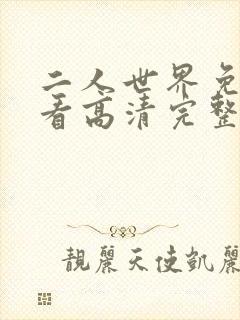 二人世界免
看高清完整
靚麗天使凱麗